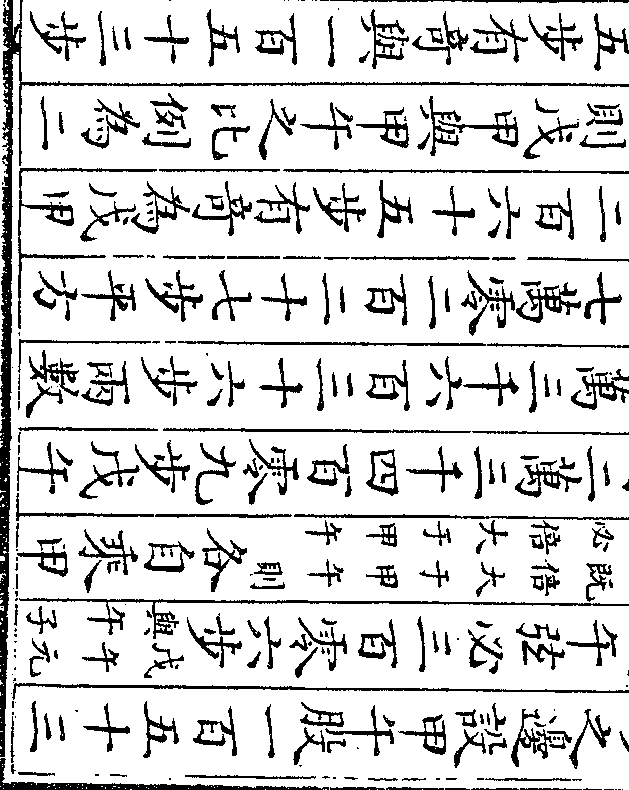 之邊設甲午股一百五十三
午弦必三百零六步戊午元與午子
既倍大于甲午則必倍大于甲午各自乘甲
二萬三千四百零九步戊午
萬三千六百三十六步兩數
七萬零二百二十七步平方
二百六十五步有奇為戊甲
則戊甲與甲午之比例為二
五步有奇與一百五十三步